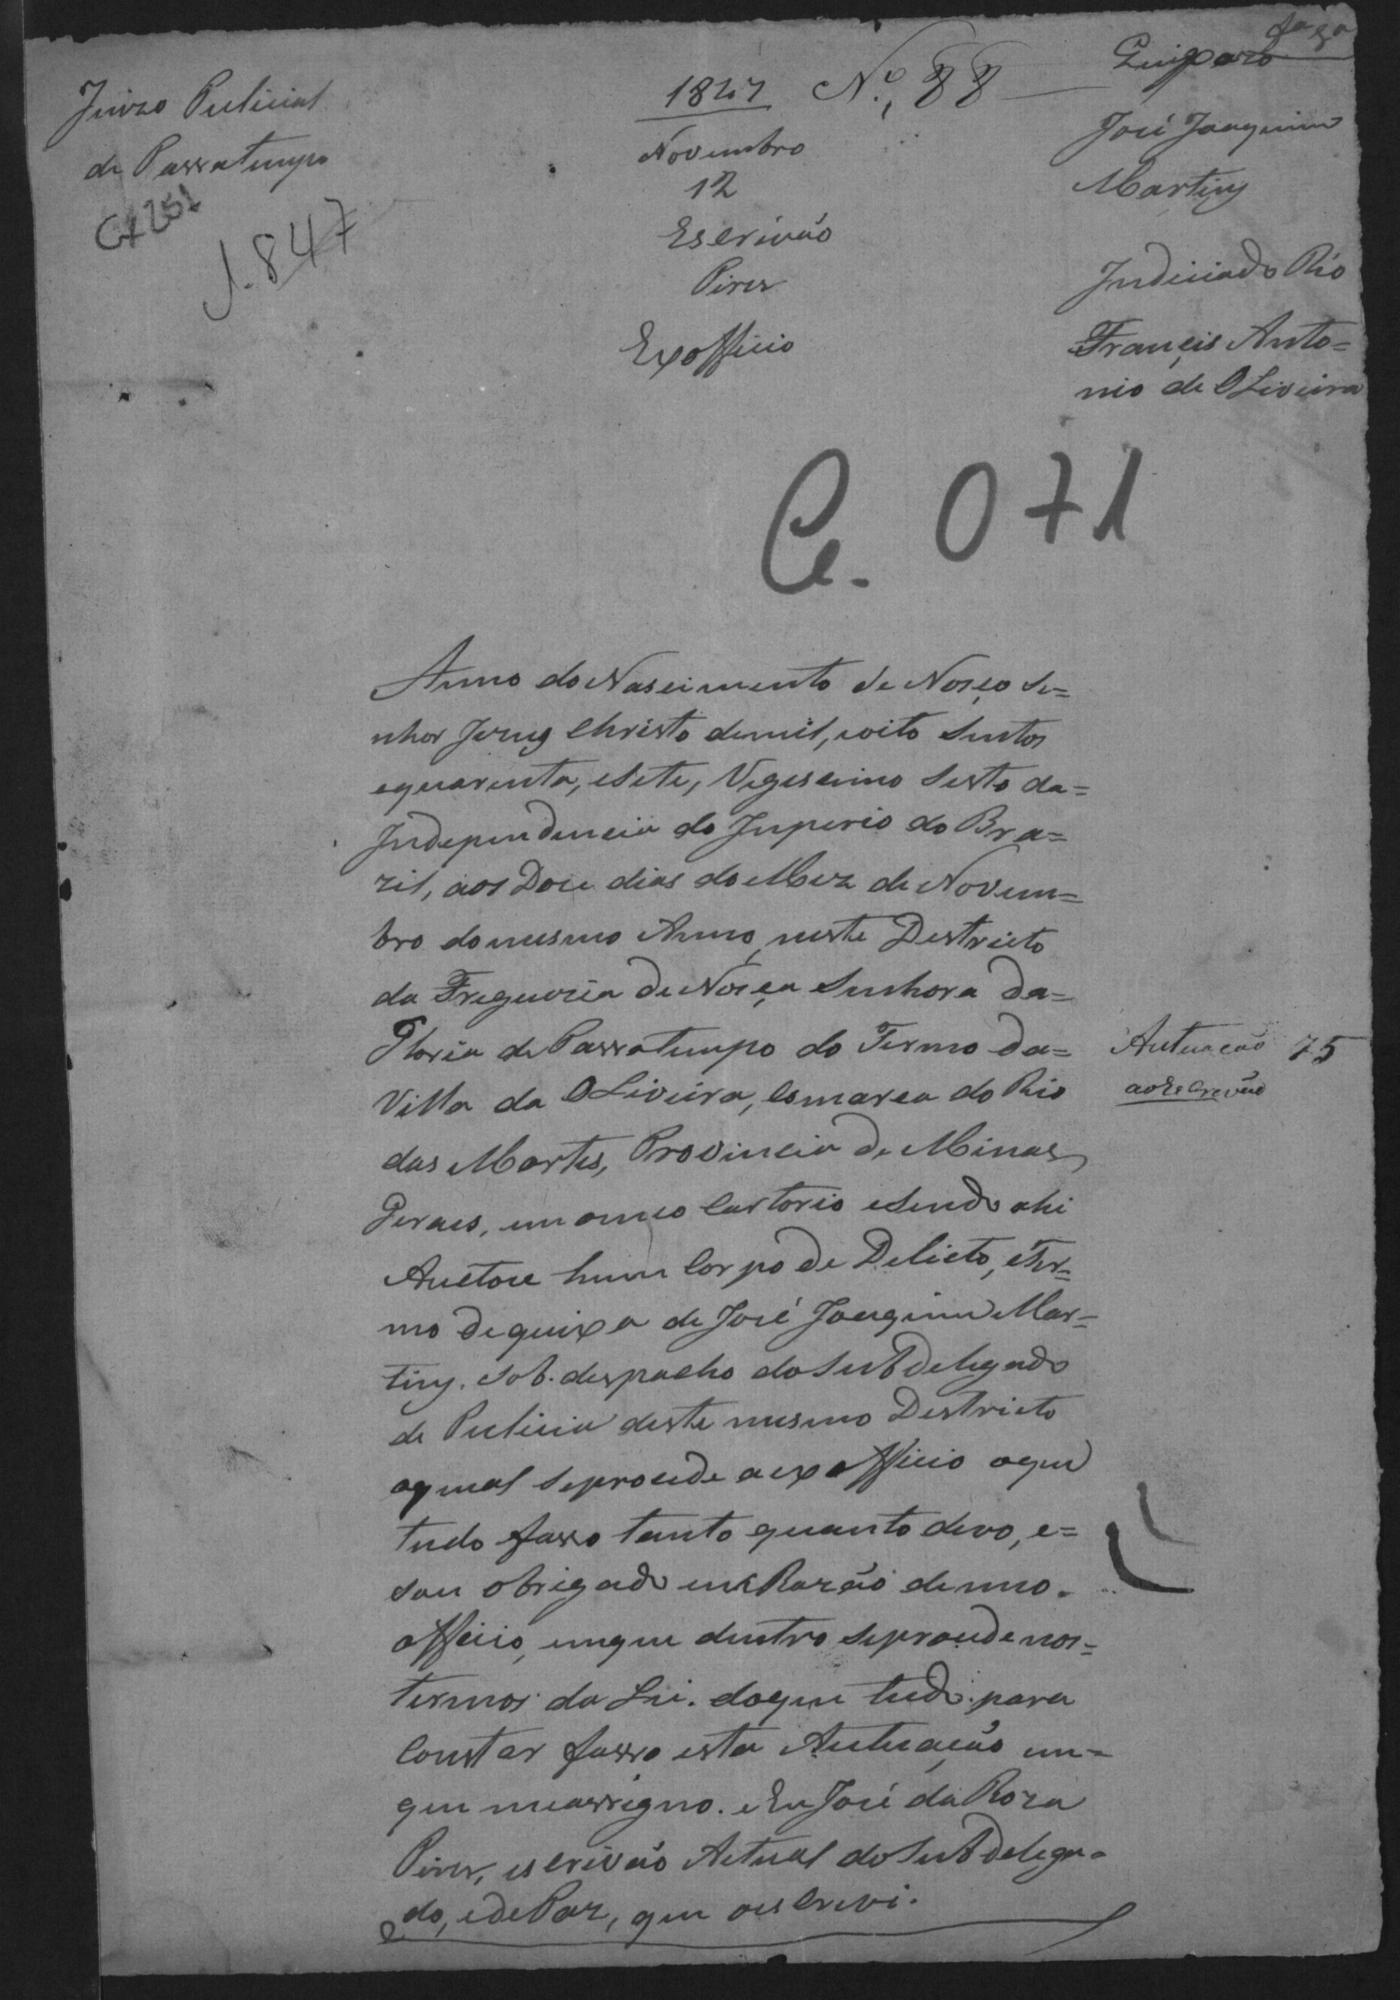 Juizo Pulicial
de Passatempo
Cx 251
1.847
1847 Nº 88
Novembro
12
Escrivão
Pires
Exofficio
Queixozo
José Joaquim
Martins
Indiciado Rio
Francis Anto=
nio de OLiveira
C. 071
Anno do Nascimento de Nosço Se=
nhor Jezus Christo demil,oito Sentos
equarenta, esete, Vigessimo Sexto da=
Independencia do Imperio do Bra=
zil, aos Doze dias do Mez de Novem=
bro domesmo Anno, neste Destricto
da Freguezia de Nosça Senhora da=
Gloria de Passatempo do Termo da=
Villa da OLiveira, Comarca do Rio
das Mortes, Provincia de Minas
Geraes, em omeo Cartorio esendo ahi
Auctoei hum Corpo de Delicto, eTer=
mo dequeixa de José Joaquim Mar=
tins. sob. despacho do Subdelegado
de Pulicia deste mesmo Destricto
aqual seprocede aexofficio oque
tudo fasso tanto quanto devo, e=
sou obrigado em Razão demeo
officio, emque dentro seprocede nos=
termos da Lei. doque tudo para
Constar fasso esta Autuação em=
que measigno. eEu José da Roza
Pires, escrivão Actual do Subdelega=
do, edePaz, que oescrevi.
Autuação 75
aoEscrevão